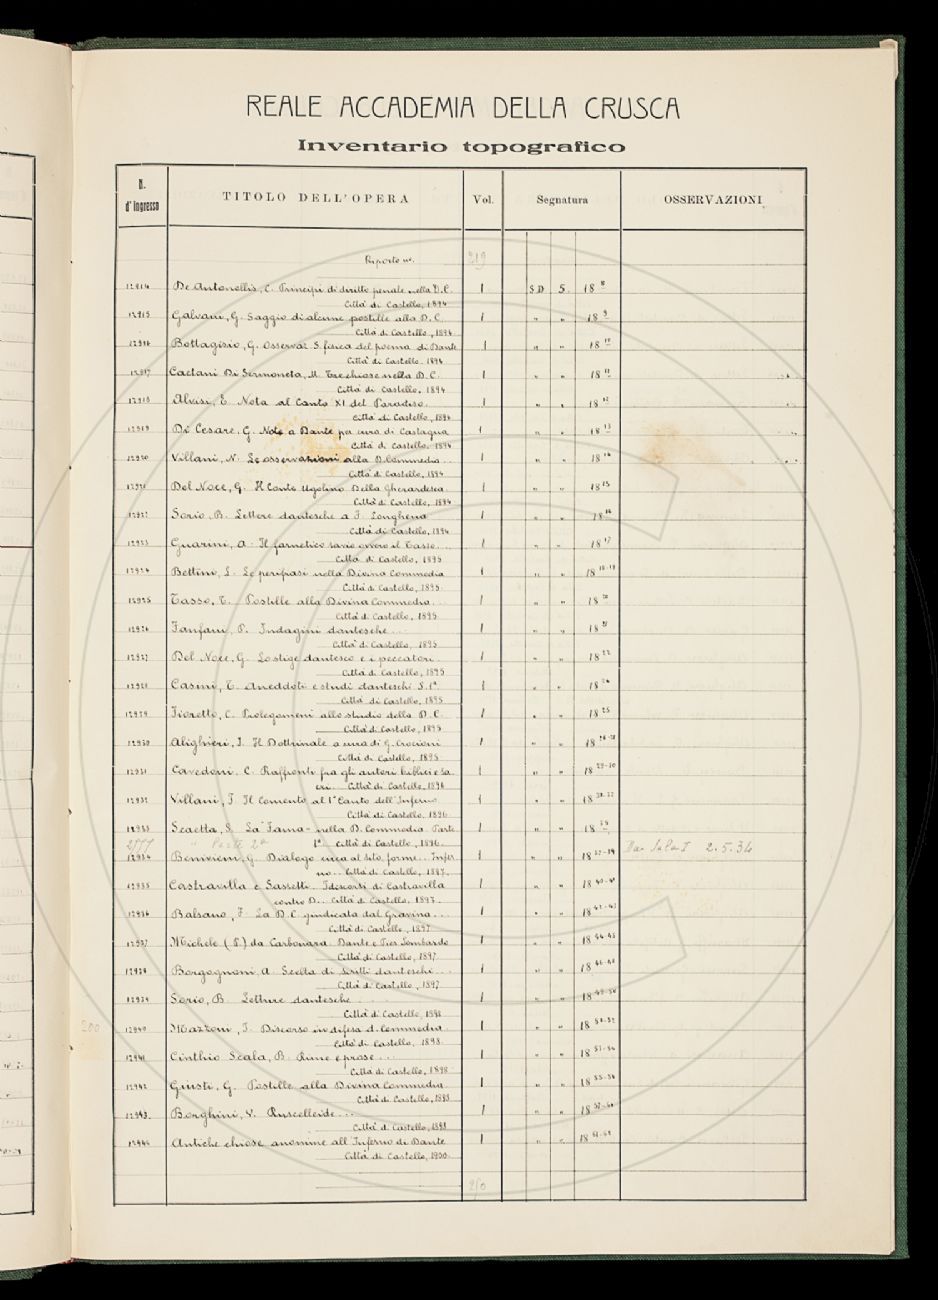 REALE ACCADEMIA DELLA CRUSCA
Inventario topografico
N. d'ingresso TITOLO DELL'OPERA Vol. Segnatura OSSERVAZIONI
Riporto n. 219
12914 De Antonellis, C. Principi di diritto penale nella D.C. 1 S.D. 5. 18 8
Città di Castello, 1894
12915 Galvani, G. Saggio di alcune postille alla D.C. 1 " " 18 9
Città di Castello, 1894
12916 Bottagisio, G. Osservaz. S. fisica del poema di Dante 1 " " 18 10
Città di Castello, 1894
12917 Caetani Di Sermoneta, M. Tre chiose nella D.C. 1 " " 18 11
Città di Castello, 1894
12918 Alvisi, E. Nota al Canto XI del Paradiso. 1 " " 18 12
Città di Castello, 1894
12919 Di Cesare, G. Note a Dante per cura di Castagna 1 " " 18 13
Città di Castello, 1894
12920 Villani, N. Le osservazioni alla D. Commedia... 1 " " 18 14
Città di Castello, 1894
12921 Del Noce, G. Il Conte Ugolino Della Gherardesca 1 " " 18 15
Città di Castello, 1894
12922 Sorio, B. Lettere dantesche a F. Longhena 1 " " 18 16
Città di Castello, 1894
12923 Guarini, A. Il farnetico savio ovvero il Tasso... 1 " " 18 17
Città di Castello, 1895
12924 Bettini, L. Le perifrasi nella Divina Commedia 1 " " 18 18-19
Città di Castello, 1895.
12925 Tasso, T. Postille alla Divina Commedia... 1 " " 18 20
Città di Castello, 1895
12926 Fanfani, P. Indagini dantesche... 1 " " 18 21
Città di Castello, 1895
12927 Del Noce, G. Lo stige dantesco e i peccatori. 1 " " 18 22
Città di Castello, 1895
12928 Casini, T. Aneddoti e studi danteschi S. 1ª 1 " " 18 24
Città di Castello, 1895
12929 Fioretto, C. Prolegomeni allo studio della D.C. 1 " " 18 25
Città di Castello, 1895
12930 Alighieri, J. Il Dottrinale a cura di G. Crocioni 1 " " 18 26-28
Città di Castello, 1895
12931 Cavedoni, C. Raffronti fra gli autori biblici e sa- 1 " " 18 29-30
cri. Città di Castello, 1896
12932 Villani, F. Il Comento al 1º Canto dell'Inferno 1 " "
Città di Castello, 1896.
12933 Scaetta, S. La "Fama" nella D. Commedia. Parte 1 " " 18
1ª. Città di Castello, 1896.
" Parte 2ª 2.5.34
12934 Benivieni, G. Dialogo circa al sito, forme... Infer- 1 " " 18
no... Città di Castello, 1897.
12935 Castravilla e Sassetti. I discorsi di Castravilla 1 " " 18 40-41
contro D... Città di Castello, 1897.
12936 Balsano, F. La D.C. giudicata dal Gravina... 1 " " 18 42-43
Città di Castello, 1897
12937 Michele (P.) da Carbonara. Dante e Pier Lombardo 1 " " 18 44-45
Città di Castello, 1897.
12938 Borgognoni, A. Scelta di scritti danteschi... 1 " " 18 46-48
Città di Castello, 1897
12939 Sorio, B. Letture dantesche... 1 " " 18 49-50
Città di Castello, 1898
200
12940 Mazzoni, J. Discorso in difesa d. Commedia. 1 " " 18 51-52
Città di Castello, 1898.
12941 Cinthio Scala, B. Rime e prose... 1 " " 18 53-54
Città di Castello, 1898
12942 Giusti, G. Postille alla Divina Commedia 1 " " 18 55-56
Città di Castello, 1898
12943. Borghini, V. Ruscelleide... 1 " " 18
Città di Castello, 1898
12944 Antiche chiose anonime all'Inferno di Dante 1 " " 18 61-62
Città di Castello, 1900.
250